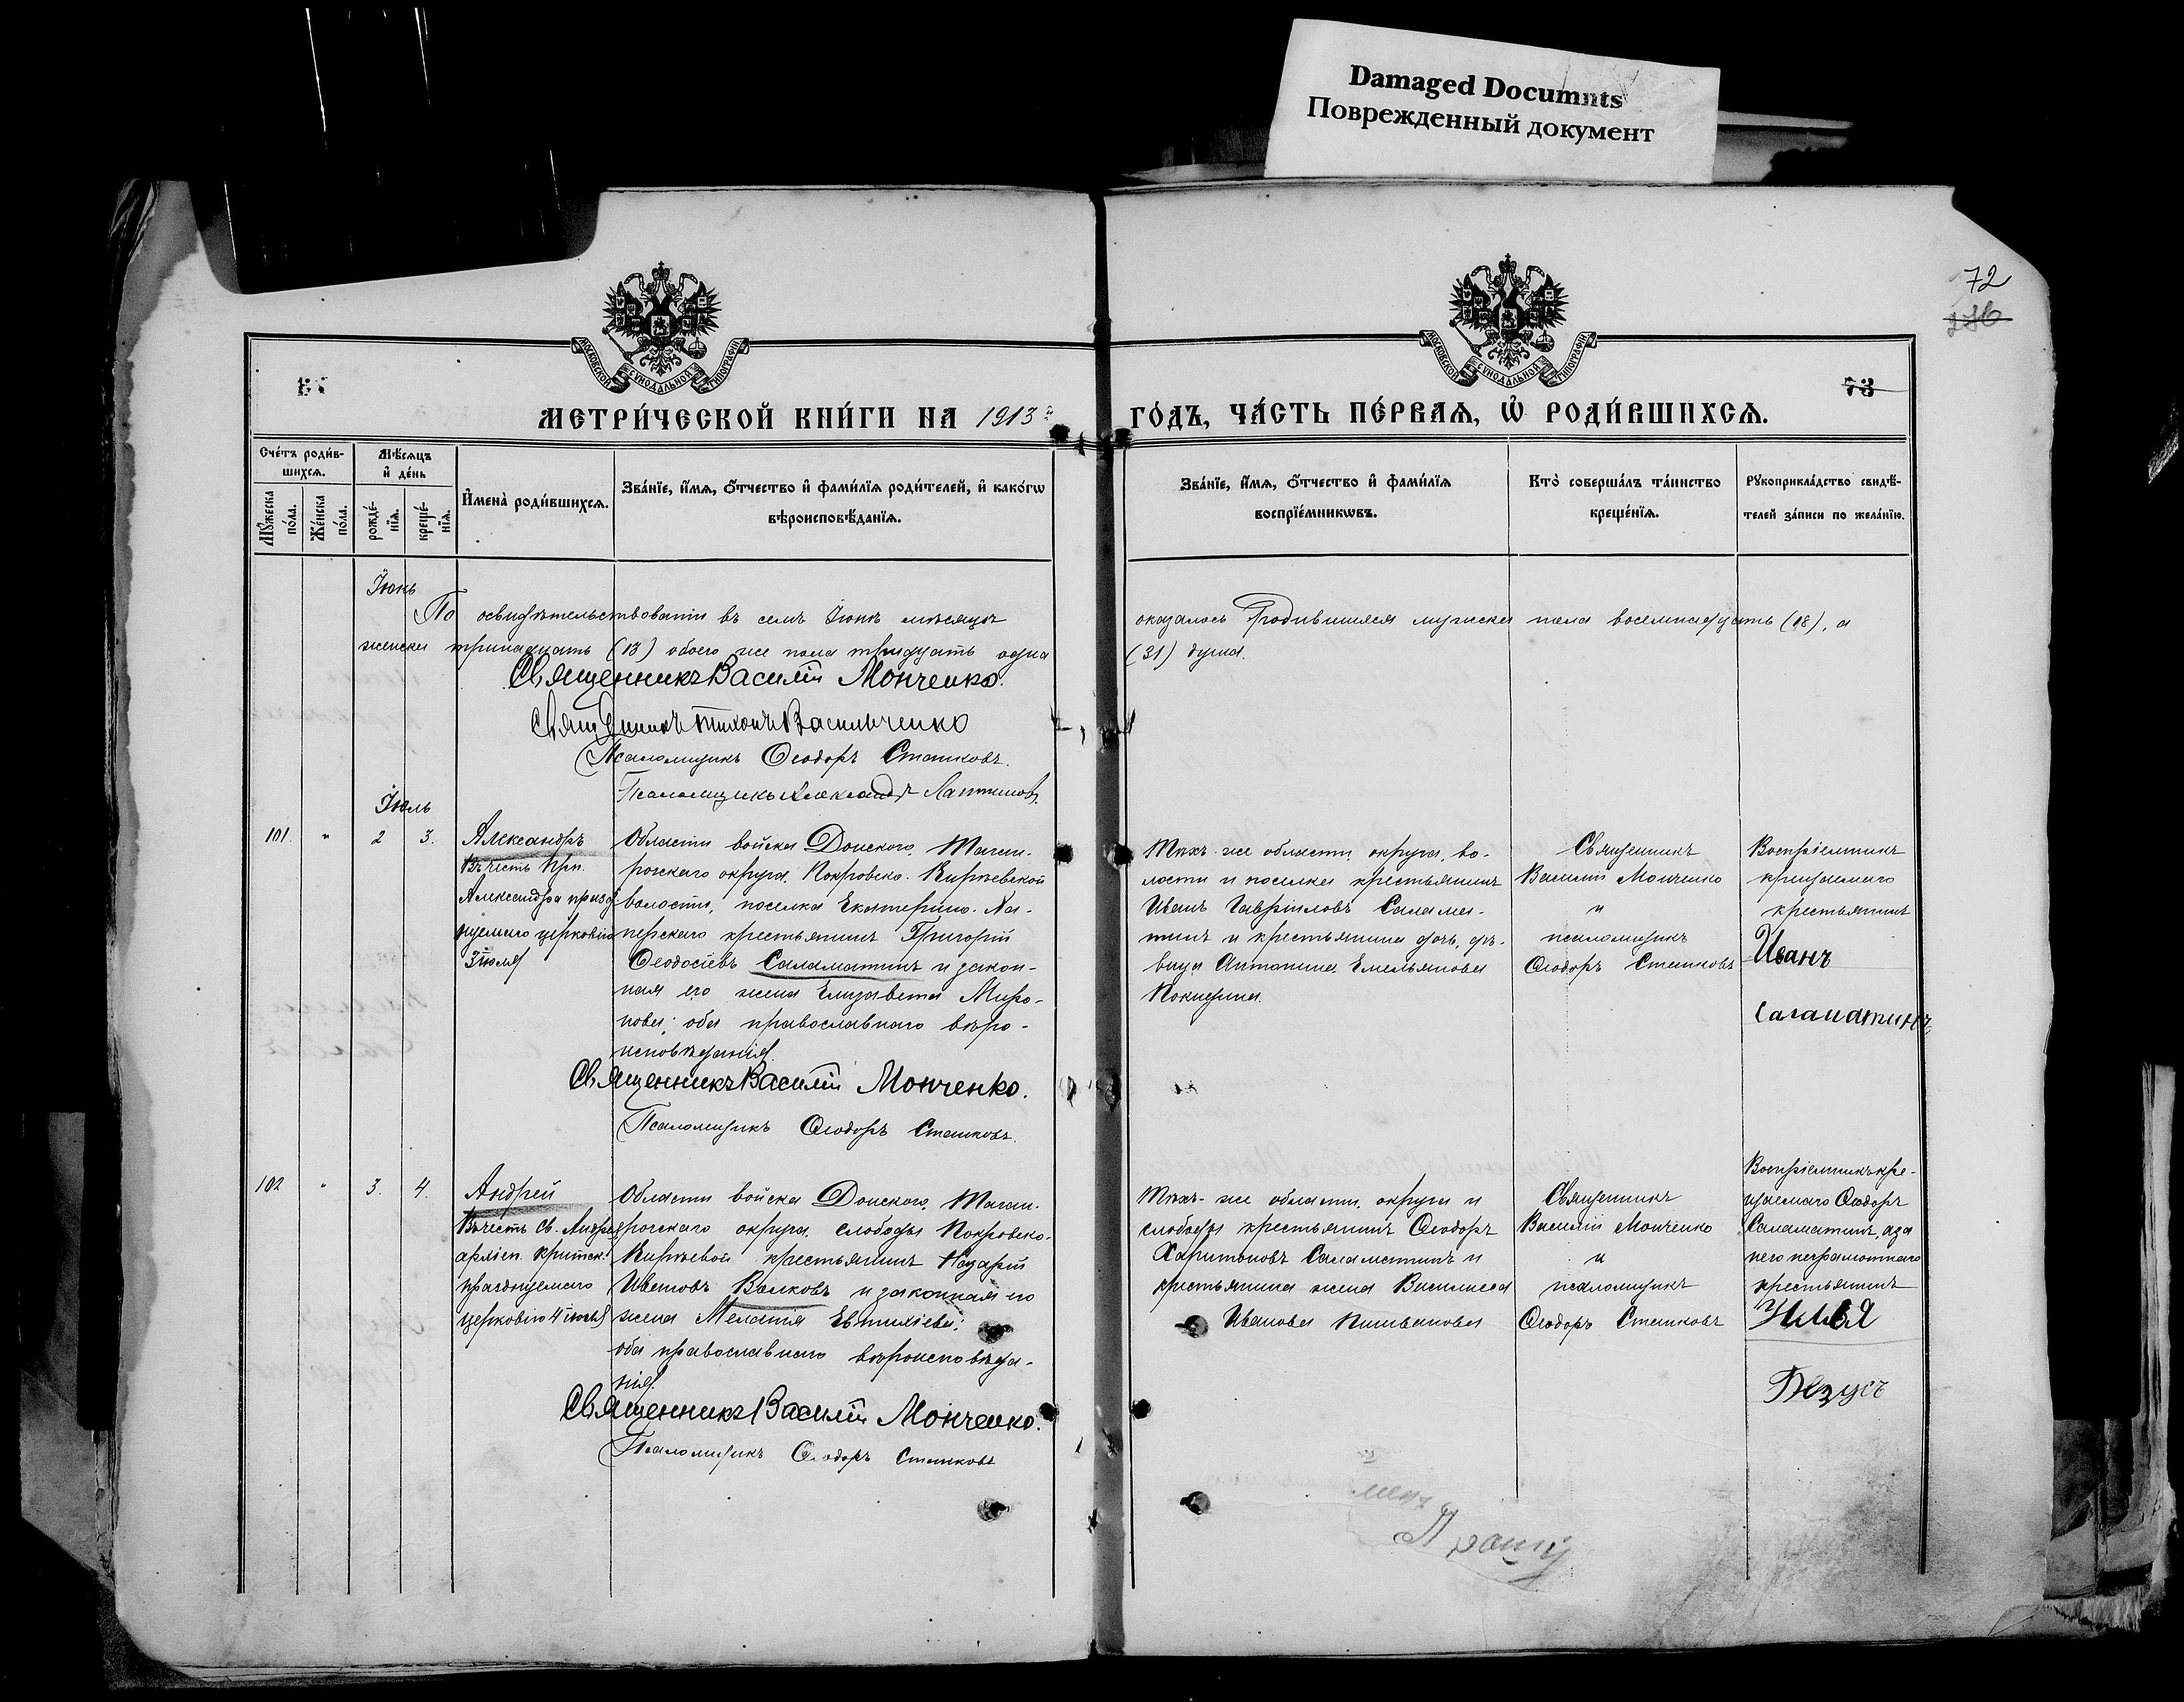 Damaged Documnts
Поврежденный документ
72
73
МОСКОВСКОЙ СУНОДАЛЬНОЙ ТИПОГРАФІИ
МОСКОВСКОЙ СУНОДАЛЬНОЙ ТИПОГРАФІИ
МЕТРИ́ЧЕСКОЙ КНИ́ГИ НА 1913й ГО́ДЪ, ЧА́СТЬ ПЕ́РВАѦ, Ѡ҆ РОДИ́ВШИХСѦ.
Сче́тъ роди́в-
шихсѧ.
Мꙋ́жеска по́ла.
Же́нска по́ла.
Мѣ́сѧцъ
и҆ де́нь
рожде́-
нїѧ.
креще́-
нїѧ.
И҆мена̀ роди́вшихсѧ.
Зва́нїе, и҆́мѧ, ѻ҆́тчество и҆ фами́лїѧ роди́телей, и҆ како́гѡ
вѣроисповѣ́данїѧ.
Зва́нїе, и҆́мѧ, ѻ҆́тчество и҆ фами́лїѧ
воспрїе́мникѡвъ.
Кто̀ соверша́лъ та́инство
креще́нїѧ.
Рꙋкоприкла́дство свидѣ́-
телей за́писи по жела́нїю.
Іюнь
По освидѣтельствованіи въ семъ Іюнѣ мѣсяцѣ оказалось родившихся мужска пола восемнадцать (18), а
женска тринадцать (13) обоего же пола тридцать одна (31) душа.
Священникъ Василій Монченко.
Священникъ Тихонъ Васильченко
Псаломщикъ Ѳеодоръ Сташковъ.
Псаломщикъ Александръ
Іюль
101. " 2 3.
Александръ
Въ честь Прп.
Александра празд-
нуемаго церковію
3 іюля
Области войска Донского, Таган-
рогскаго округа, Покровско-Кирѣевской
волости, поселка Екатерино-Ха-
перскаго крестьянинъ Григорій
Ѳеодосіевъ Саламатинъ и закон-
ная его жена Елизавета Миро-
нова; оба православнаго вѣро-
исповѣданія.
Священникъ Василій Монченко.
Псаломщикъ Ѳеодоръ Сташковъ.
Тѣхъ-же области, округа, во-
лости и поселка крестьянинъ
Иванъ Гавріиловъ Салама-
тинъ и крестьянина дочь, дѣ-
вица Антонина Емельянова
Покидина.
Священникъ
Василій Монченко
и
псаломщикъ
Ѳеодоръ Сташковъ
Воспріемникъ
крещаемаго
крестьянинъ
Иванъ
Саламатинъ
102 " 3. 4.
Андрей
Въ честь Св. Андрея
архіеп. Критск.
празднуемаго
церковію 4 іюля
Области войска Донского, Таган-
рогскаго округа, слободы Покровско-
Кирѣевой крестьянинъ Назарій
Ивановъ Волковъ и законная его
жена Меланія Евтихіева;
оба православнаго вѣроисповѣда-
нія.
Священникъ Василій Монченко.
Псаломщикъ Ѳеодоръ Сташковъ
Тѣхъ-же области, округа и
слободы крестьянинъ Ѳеодоръ
Харитоновъ Саламатинъ и
крестьянина жена Василиса
Иванова
Священникъ
Василій Монченко
и
псаломщикъ
Ѳеодоръ Сташковъ
Воспріемникъ кре-
щаемаго Ѳеодоръ
Саламатинъ, а за
него неграмотнаго
крестьянинъ
Илья
Безусъ